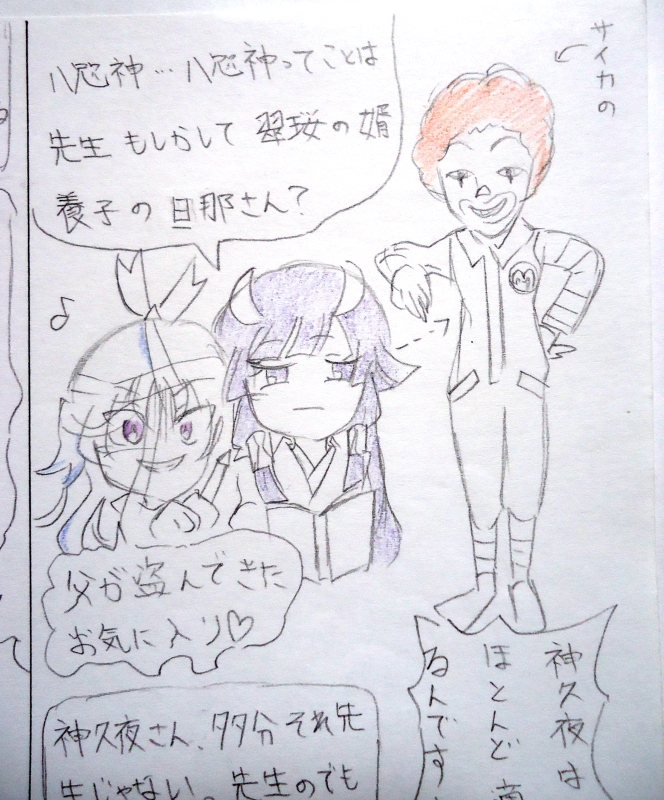 サイカの
八咫神…八咫神ってことは
先生 もしかして 翠珱の婿
養子の旦那さん?
M
父が盗んできた
お気に入り♡
神久夜は
ほとんど
るんです
神久夜さん、多分それ先
生じゃない。先生のでも